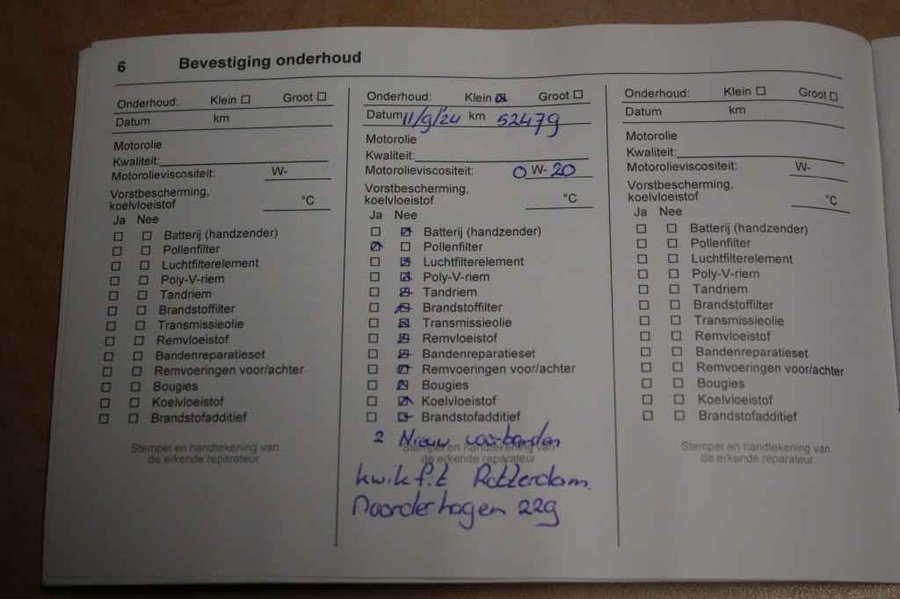 6 Bevestiging onderhoud
Onderhoud: Klein ☐ Groot ☐
Datum km
Motorolie
Kwaliteit:
Motorolieviscositeit: W-
Vorstbescherming,
koelvloeistof °C
Ja Nee
☐ ☐ Batterij (handzender)
☐ ☐ Pollenfilter
☐ ☐ Luchtfilterelement
☐ ☐ Poly-V-riem
☐ ☐ Tandriem
☐ ☐ Brandstoffilter
☐ ☐ Transmissieolie
☐ ☐ Remvloeistof
☐ ☐ Bandenreparatieset
☐ ☐ Remvoeringen voor/achter
☐ ☐ Bougies
☐ ☐ Koelvloeistof
☐ ☐ Brandstofadditief
Stempel en handtekening van
de erkende reparateur
Onderhoud: Klein ☒ Groot ☐
Datum 11/9/'24 km 52479
Motorolie
Kwaliteit:
Motorolieviscositeit: 0 W- 20
Vorstbescherming,
koelvloeistof °C
Ja Nee
☐ ☒ Batterij (handzender)
☒ ☐ Pollenfilter
☐ ☒ Luchtfilterelement
☐ ☒ Poly-V-riem
☐ ☒ Tandriem
☐ ☒ Brandstoffilter
☐ ☒ Transmissieolie
☐ ☒ Remvloeistof
☐ ☒ Bandenreparatieset
☐ ☒ Remvoeringen voor/achter
☐ ☒ Bougies
☐ ☒ Koelvloeistof
☐ ☒ Brandstofadditief
2 Nieuw voorbanden
Stempel en handtekening van
de erkende reparateur
kwikfit Rotterdam
Noorderhagen 229
Onderhoud: Klein ☐ Groot ☐
Datum km
Motorolie
Kwaliteit:
Motorolieviscositeit: W-
Vorstbescherming,
koelvloeistof °C
Ja Nee
☐ ☐ Batterij (handzender)
☐ ☐ Pollenfilter
☐ ☐ Luchtfilterelement
☐ ☐ Poly-V-riem
☐ ☐ Tandriem
☐ ☐ Brandstoffilter
☐ ☐ Transmissieolie
☐ ☐ Remvloeistof
☐ ☐ Bandenreparatieset
☐ ☐ Remvoeringen voor/achter
☐ ☐ Bougies
☐ ☐ Koelvloeistof
☐ ☐ Brandstofadditief
Stempel en handtekening van
de erkende reparateur